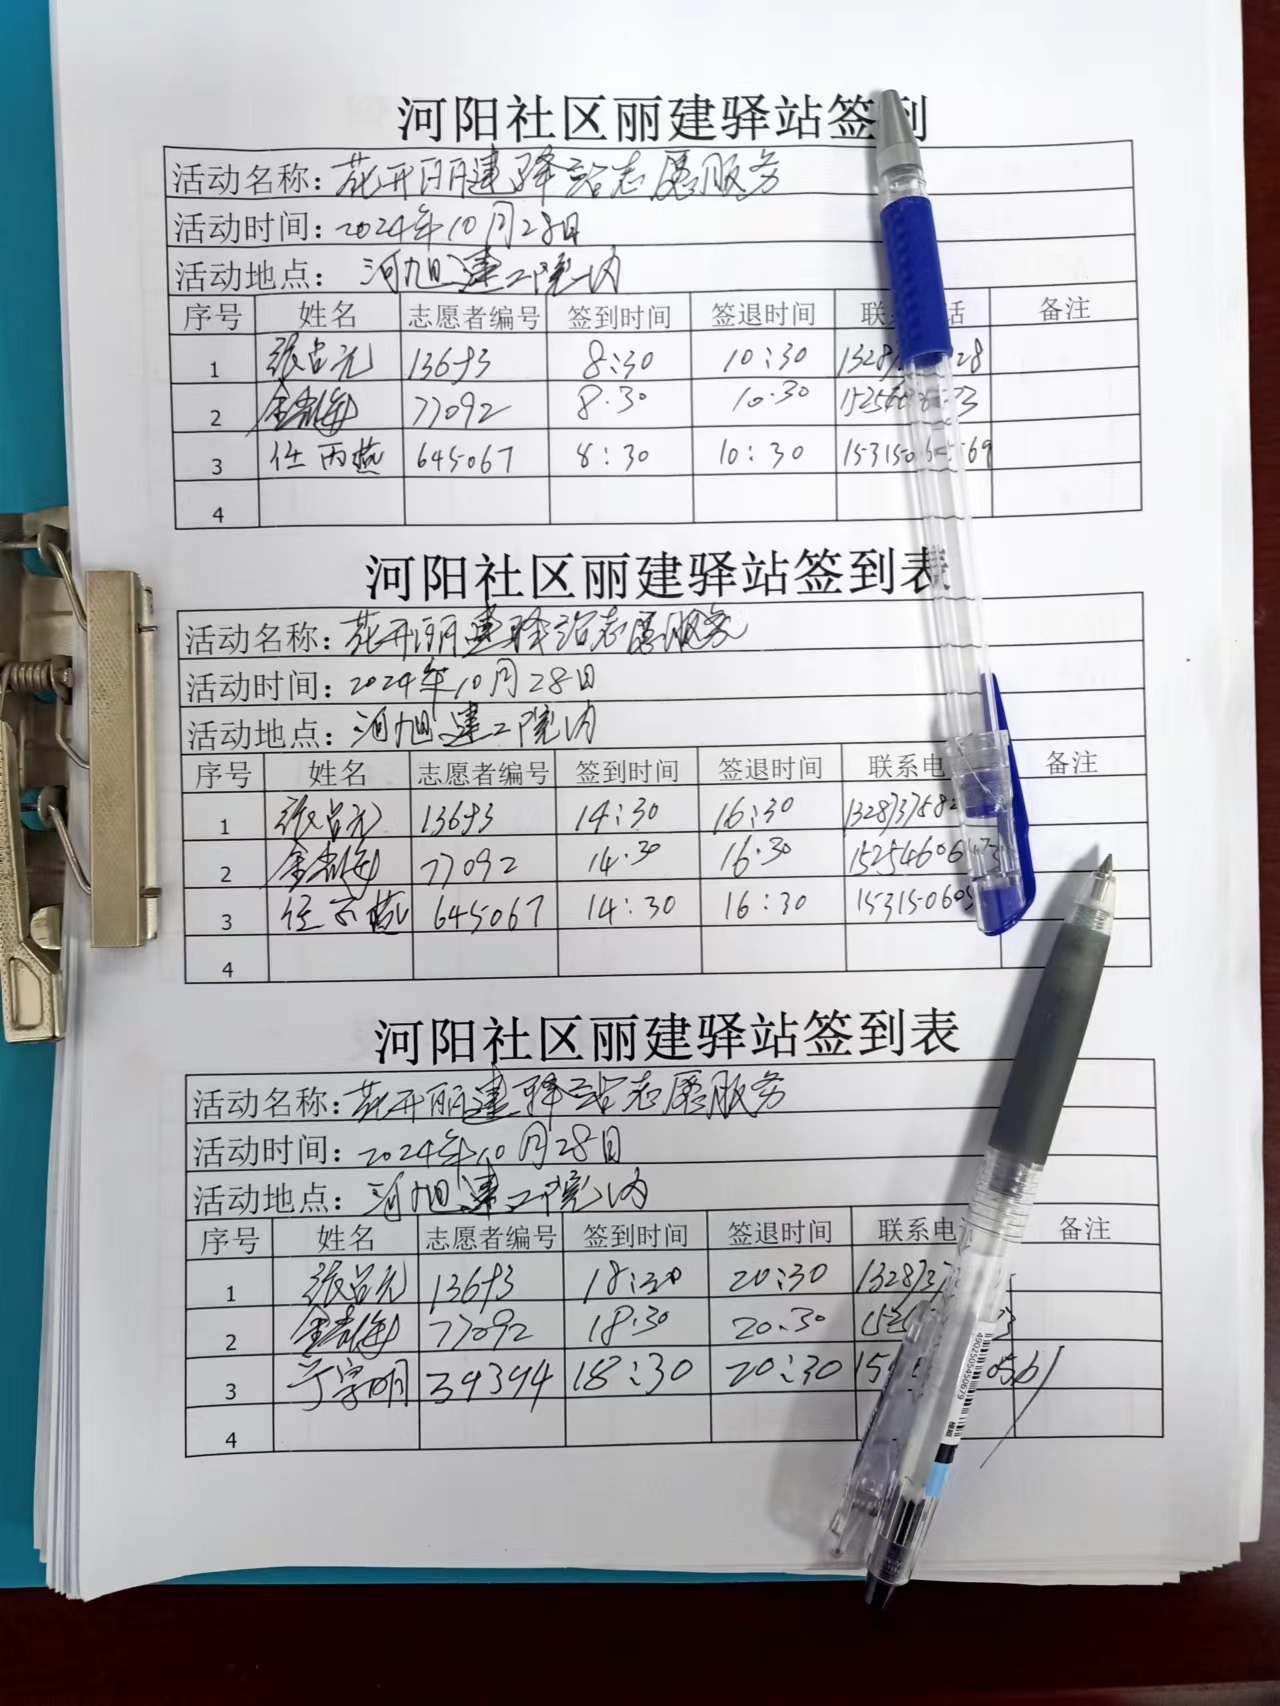 河阳社区丽建驿站签到
活动名称：花开丽建驿站志愿服务
活动时间：2024年10月28日
活动地点：河旭建工院内
序号 姓名 志愿者编号 签到时间 签退时间 联 话 备注
1 张占元 13693 8:30 10:30
2 77092 8:30 10:30
3 任丙燕 645067 8:30 10:30
4
河阳社区丽建驿站签到表
活动名称：花开丽建驿站志愿服务
活动时间：2024年10月28日
活动地点：河旭建工院内
序号 姓名 志愿者编号 签到时间 签退时间 联系电 备注
1 张占元 13693 14:30 16:30
2 77092 14:30 16:30
3 任丙燕 645067 14:30 16:30
4
河阳社区丽建驿站签到表
活动名称：花开丽建驿站志愿服务
活动时间：2024年10月28日
活动地点：河旭建工院内
序号 姓名 志愿者编号 签到时间 签退时间 联系电 备注
1 张占元 13693 18:30 20:30
2 77092 18:30 20:30
3 于字明 39394 18:30 20:30
4
4902505450679